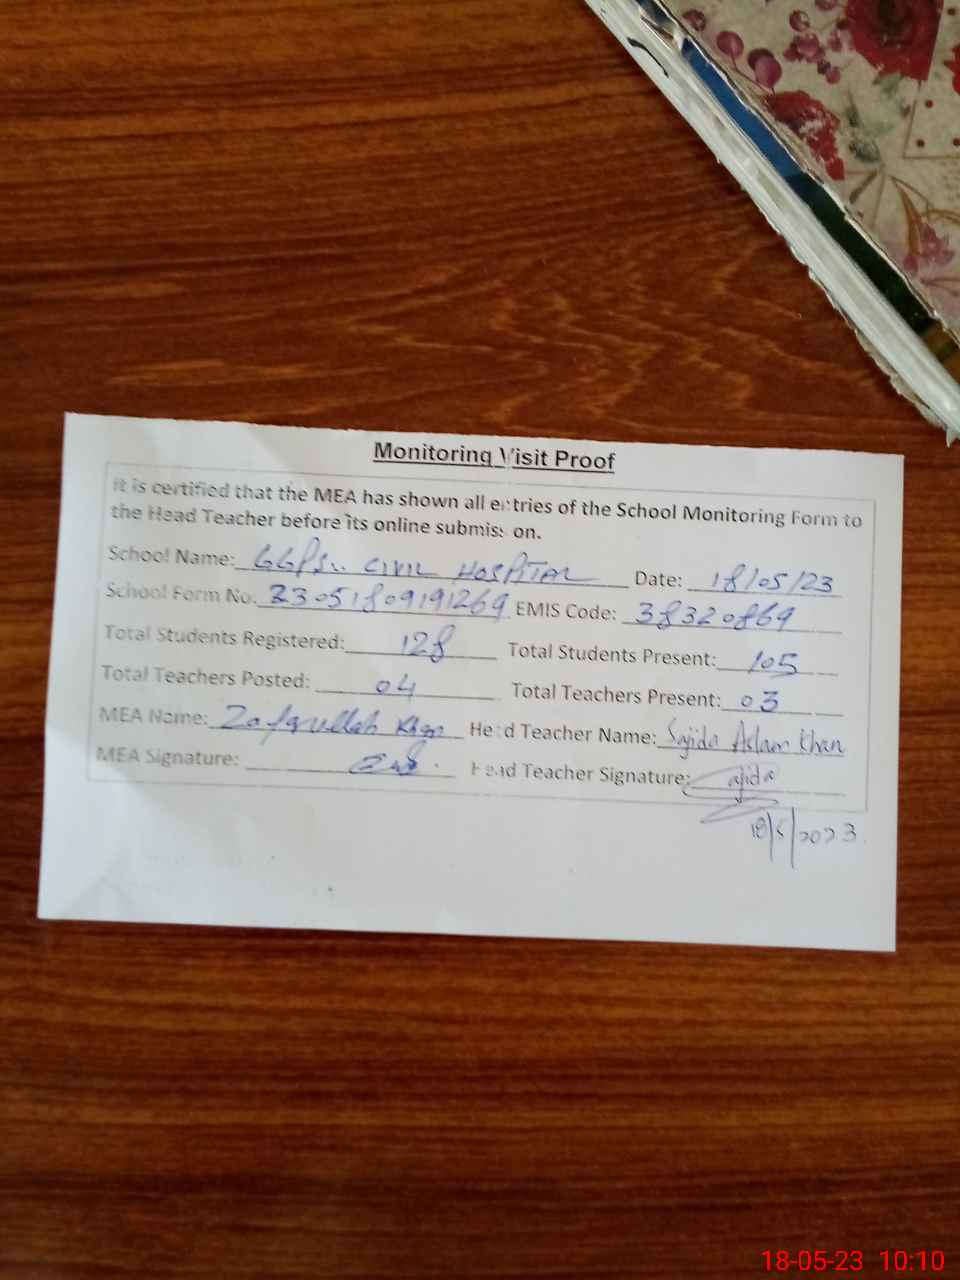 Monitoring Visit Proof
It is certified that the MEA has shown all entries of the School Monitoring Form to
the Head Teacher before its online submission.
School Name: GGPS CIVIL HOSPITAL Date: 18/05/23
School Form No: 23051809191269 EMIS Code: 38320869
Total Students Registered: 128 Total Students Present: 105
Total Teachers Posted: 04 Total Teachers Present: 03
MEA Name: Zafarullah Khan Head Teacher Name: Sajida Aslam Khan
MEA Signature: Head Teacher Signature: Sajida
18/5/2023
18-05-23 10:10